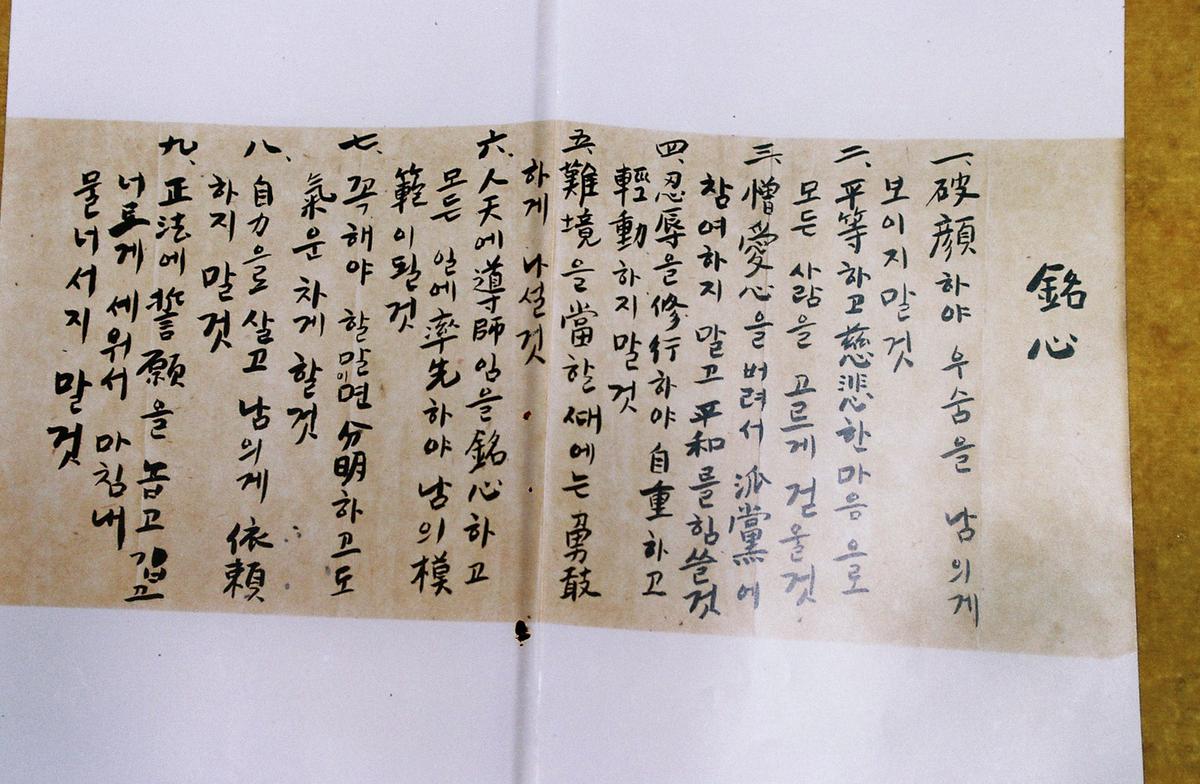 銘心
一、破顔하야 우숨을 남의게
보이지말것
二、平等하고慈悲한마음으로
모든 사람을 고르게 걷울것
三、憎愛心을 버려서 派黨에
참여하지 말고平和를힘쓸것
四、忍辱을修行하야自重하고
輕動하지말것
五、難境을當할때에는勇敢
하게 나설것
六、人天에導師임을銘心하고
모든 일에率先하야남의模
範이될것
七、꼭해야 할말이면分明하고도
氣운차게 할것
八、自力으로살고 남의게依頼
하지 말것
九、正法에誓願을 놉고깊고
너르게 세워서 마침내
물너서지 말것